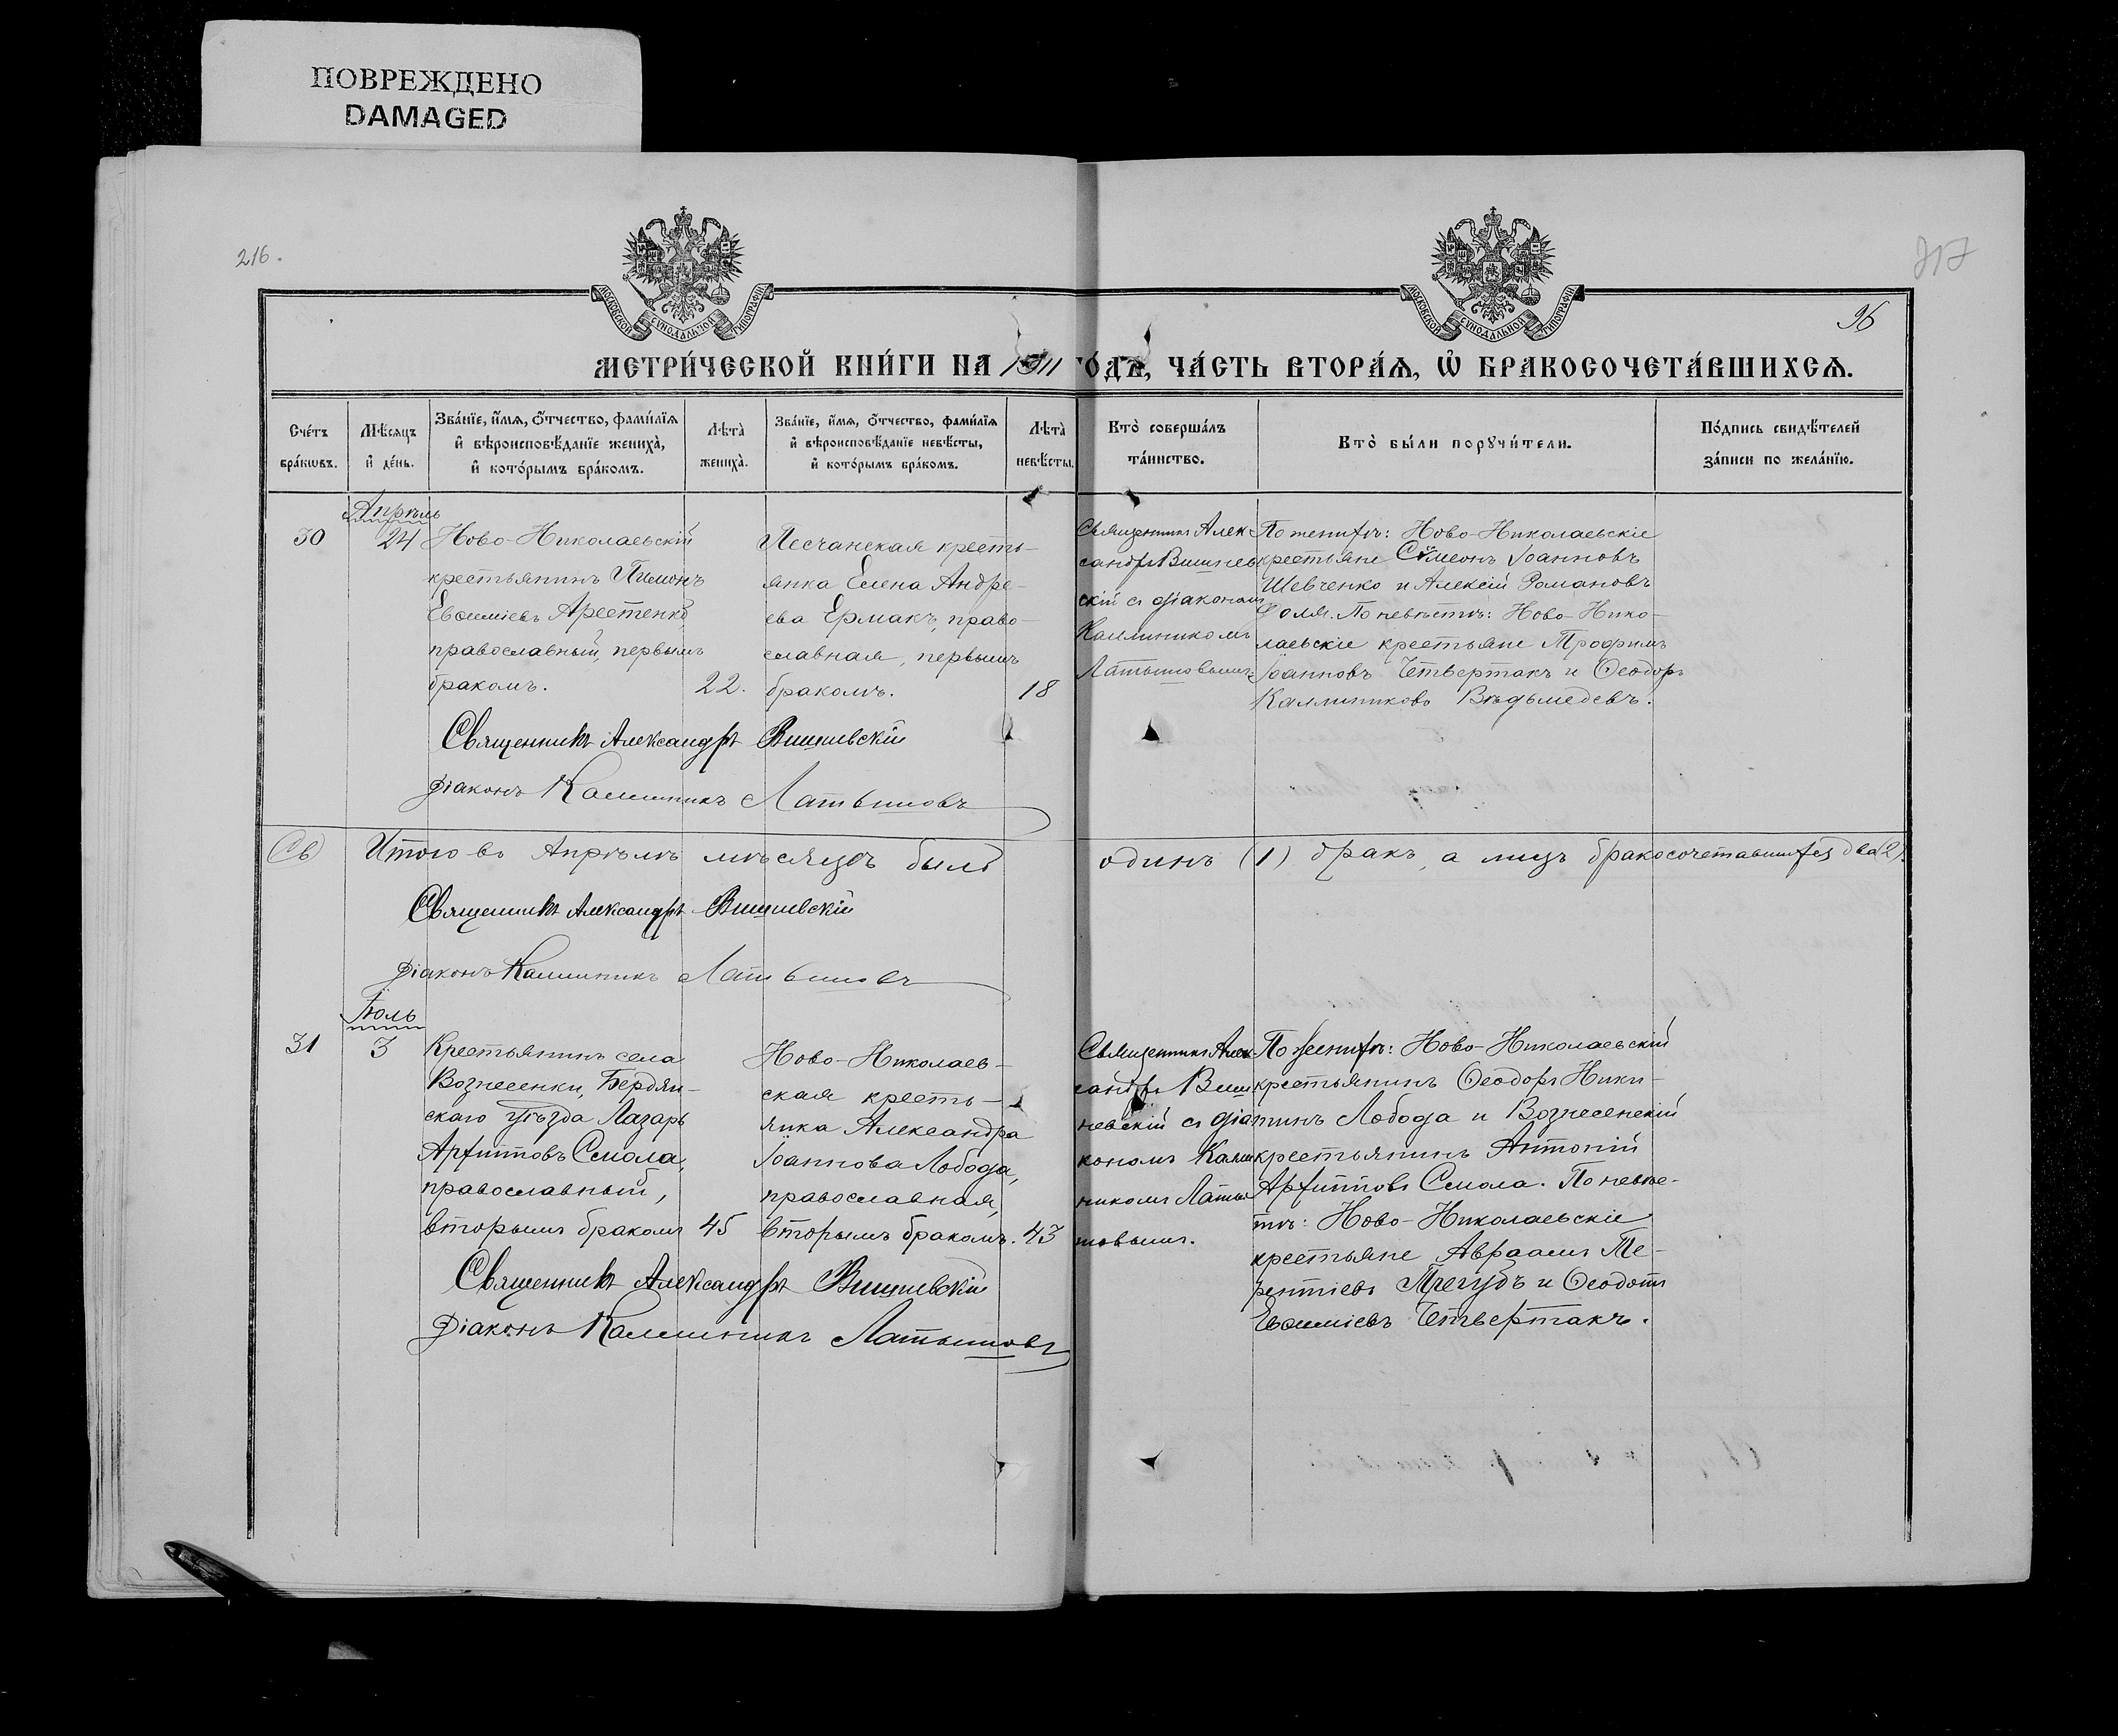 ПОВРЕЖДЕНО
DAMAGED
216.
217
96
МОСКОВСКОЙ СѴНОДАЛЬНОЙ ТИПОГРАФІИ
МОСКОВСКОЙ СѴНОДАЛЬНОЙ ТИПОГРАФІИ
МЕТРИ́ЧЕСКОЙ КНИ́ГИ НА 1911 ГО́ДЪ, ЧА́СТЬ ВТОРА́Ѧ, Ѽ БРАКОСОЧЕТА́ВШИХСѦ.
Сче́тъ бра́кѡвъ.
Мѣ́сяцъ и҆ де́нь.
Зва́нїе, и҆́мѧ, ѻ҆́тчество, фами́лїѧ
и҆ вѣроисповѣ́данїе жениха̀,
и҆ кото́рымъ бра́комъ.
Лѣта̀ жениха̀.
Зва́нїе, и҆́мѧ, ѻ҆́тчество, фами́лїѧ
и҆ вѣроисповѣ́данїе невѣ́сты,
и҆ кото́рымъ бра́комъ.
Лѣта̀ невѣ́сты.
Кто̀ соверша́лъ та́инство.
Кто̀ бы́ли порꙋчи́тели.
По́дпись свидѣ́телей за́писи по жела́нїю.
Апрѣль
30
24
Ново-Николаевскій
крестьянинъ Пимонъ
Евѳиміевъ Арестенко,
православный, первымъ
бракомъ.
22.
Песчанская кресть-
янка Елена Андре-
ева Ермакъ, право-
славная, первымъ
бракомъ.
18
Священникъ Алек-
сандръ Вишнев-
скій съ діакономъ
Каллиникомъ
Латышовымъ.
По женихѣ: Ново-Николаевскіе
крестьяне Сѵмеонъ Іоанновъ
Шевченко и Алексій Романовъ
Доля. По невѣстѣ: Ново-Нико-
лаевскіе крестьяне Трофимъ
Іоанновъ Четвертакъ и Ѳеодоръ
Каллиниковъ Вѣдьмедевъ.
Священникъ Александръ Вишневскій
Діаконъ Каллиникъ Латышовъ
Св
Итого въ Апрѣлѣ мѣсяцѣ былъ одинъ (1) бракъ, а лицъ бракосочетавшихся два (2).
Священникъ Александръ Вишневскій
Діаконъ Каллиникъ Латышовъ
Іюль
31
3
Крестьянинъ села
Вознесенки, Бердян-
скаго уѣзда Лазарь
Архипповъ Смола,
православный,
вторымъ бракомъ
45
Ново-Николаев-
ская кресть-
янка Александра
Іоаннова Лобода,
православная,
вторымъ бракомъ.
43
Священникъ Алек-
сандръ Виш-
невскій съ діа-
кономъ Калли-
никомъ Латы-
шовымъ.
По женихѣ: Ново-Николаевскій
крестьянинъ Ѳеодоръ Ники-
тинъ Лобода и Вознесенскій
крестьянинъ Антоній
Архипповъ Смола. По невѣс-
тѣ: Ново-Николаевскіе
крестьяне Авраамъ Те-
рентіевъ и Ѳеодотъ
Евѳиміевъ Четвертакъ.
Священникъ Александръ Вишневскій
Діаконъ Каллиникъ Латышовъ